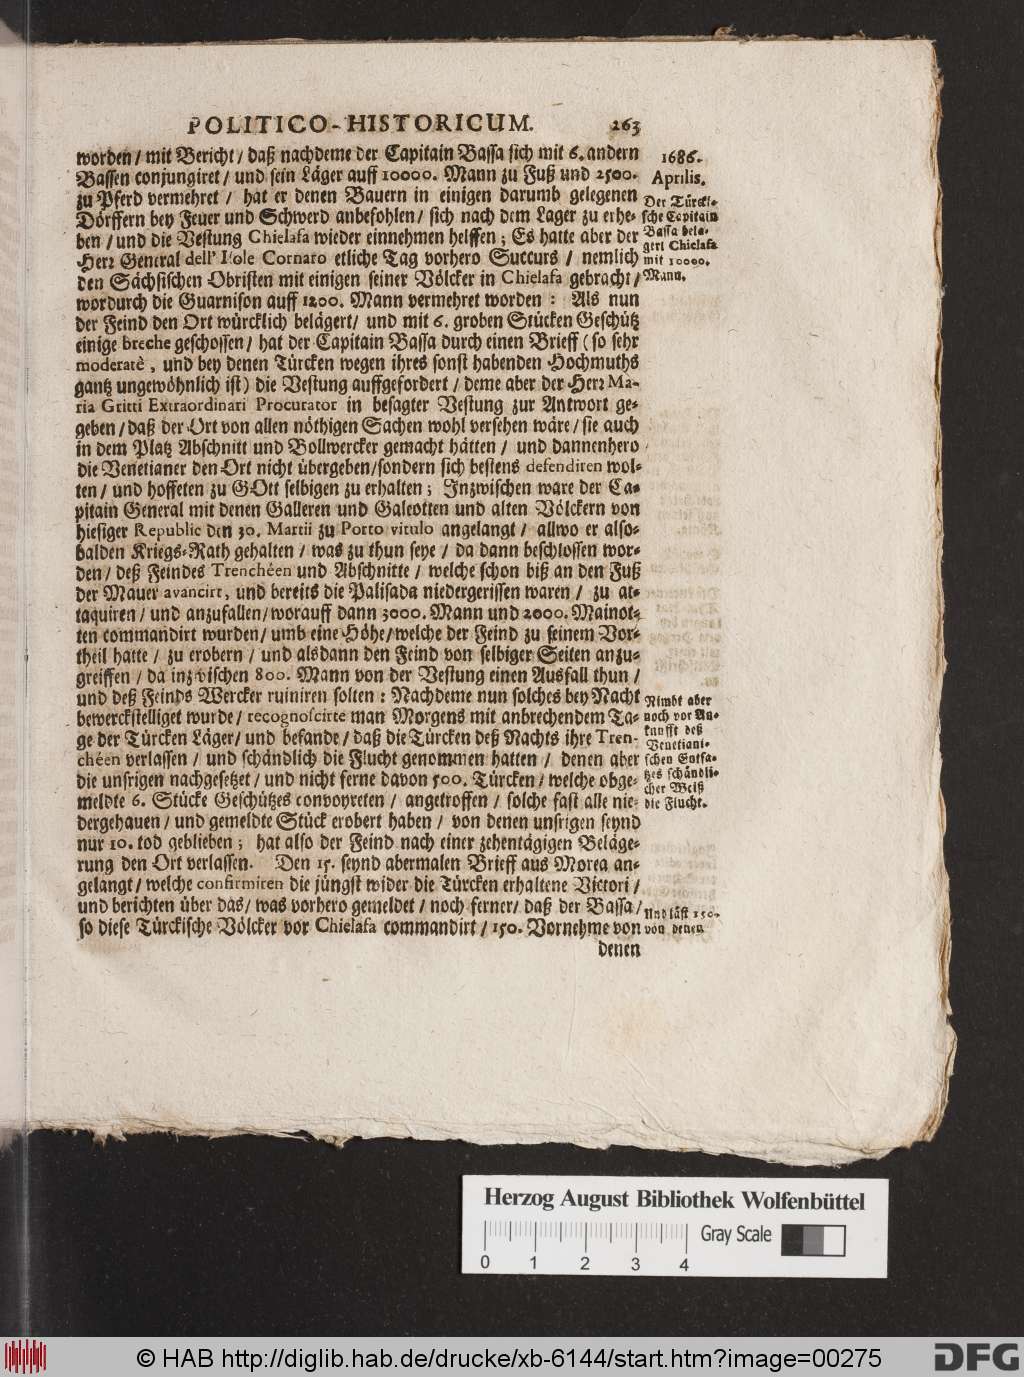 POLITICO-HISTORICUM. 263
worden / mit Bericht / daß nachdeme der Capitain Bassa sich mit 6. andern
Bassen conjungiret / und sein Läger auff 10000. Mann zu Fuß und 2500.
zu Pferd vermehret / hat er denen Bauern in einigen darumb gelegenen
Dörffern bey Feuer und Schwerd anbefohlen / sich nach dem Lager zu erhe-
ben / und die Vestung Chielafa wieder einnehmen helffen; Es hatte aber der
Herr General dell' Isole Cornaro etliche Tag vorhero Succurs / nemlich
den Sächsischen Obristen mit einigen seiner Völcker in Chielafa gebracht /
wordurch die Guarnison auff 1200. Mann vermehret worden: Als nun
der Feind den Ort würcklich belägert / und mit 6. groben Stücken Geschütz
einige breche geschossen / hat der Capitain Bassa durch einen Brieff (so sehr
moderatè, und bey denen Türcken wegen ihres sonst habenden Hochmuths
gantz ungewöhnlich ist) die Vestung auffgefordert / deme aber der Herr Ma-
ria Gritti Extraordinari Procurator in besagter Vestung zur Antwort ge-
geben / daß der Ort von allen nöthigen Sachen wohl versehen wäre / sie auch
in dem Platz Abschnitt und Bollwercker gemacht hätten / und dannenhero
die Venetianer den Ort nicht übergeben / sondern sich bestens defendiren wol-
ten / und hoffeten zu GOtt selbigen zu erhalten; Inzwischen ware der Ca-
pitain General mit denen Galleren und Galeotten und alten Völckern von
hiesiger Republic den 30. Martii zu Porto vitulo angelangt / allwo er also-
balden Kriegs-Rath gehalten / was zu thun seye / da dann beschlossen wor-
den / deß Feindes Trenchéen und Abschnitte / welche schon biß an den Fuß
der Mauer avancirt, und bereits die Palisada niedergerissen waren / zu at-
taquiren / und anzufallen / worauff dann 3000. Mann und 2000. Mainot-
ten commandirt wurden / umb eine Höhe / welche der Feind zu seinem Vor-
theil hatte / zu erobern / und alsdann den Feind von selbiger Seiten anzu-
greiffen / da inzwischen 800. Mann von der Vestung einen Ausfall thun /
und deß Feinds Wercker ruiniren solten: Nachdeme nun solches bey Nacht
bewerckstelliget wurde / recognoscirte man Morgens mit anbrechendem Ta-
ge der Türcken Läger / und befande / daß die Türcken deß Nachts ihre Tren-
chéen verlassen / und schändlich die Flucht genommen hatten / denen aber
die unsrigen nachgesetzet / und nicht ferne davon 500. Türcken / welche obge-
meldte 6. Stücke Geschützes convoyreten / angetroffen / solche fast alle nie-
dergehauen / und gemeldte Stück erobert haben / von denen unsrigen seynd
nur 10. tod geblieben; hat also der Feind nach einer zehentägigen Beläge-
rung den Ort verlassen. Den 15. seynd abermalen Brieff aus Morea an-
gelangt / welche confirmiren die jüngst wider die Türcken erhaltene Victori /
und berichten über das / was vorhero gemeldet / noch ferner / daß der Bassa /
so diese Türckische Völcker vor Chielafa commandirt / 150. Vornehme von
denen
1686.
Aprilis.
Der Türcki-
sche Capitain
Bassa belä-
gert Chielafa
mit 10000.
Mann.
Nimbt aber
noch vor An-
kunfft deß
Venetiani-
schen Entsa-
tzes schändli-
cher Weiß
die Flucht.
Und läst 150.
von denen
Herzog August Bibliothek Wolfenbüttel
Gray Scale
0 1 2 3 4
© HAB http://diglib.hab.de/drucke/xb-6144/start.htm?image=00275
DFG